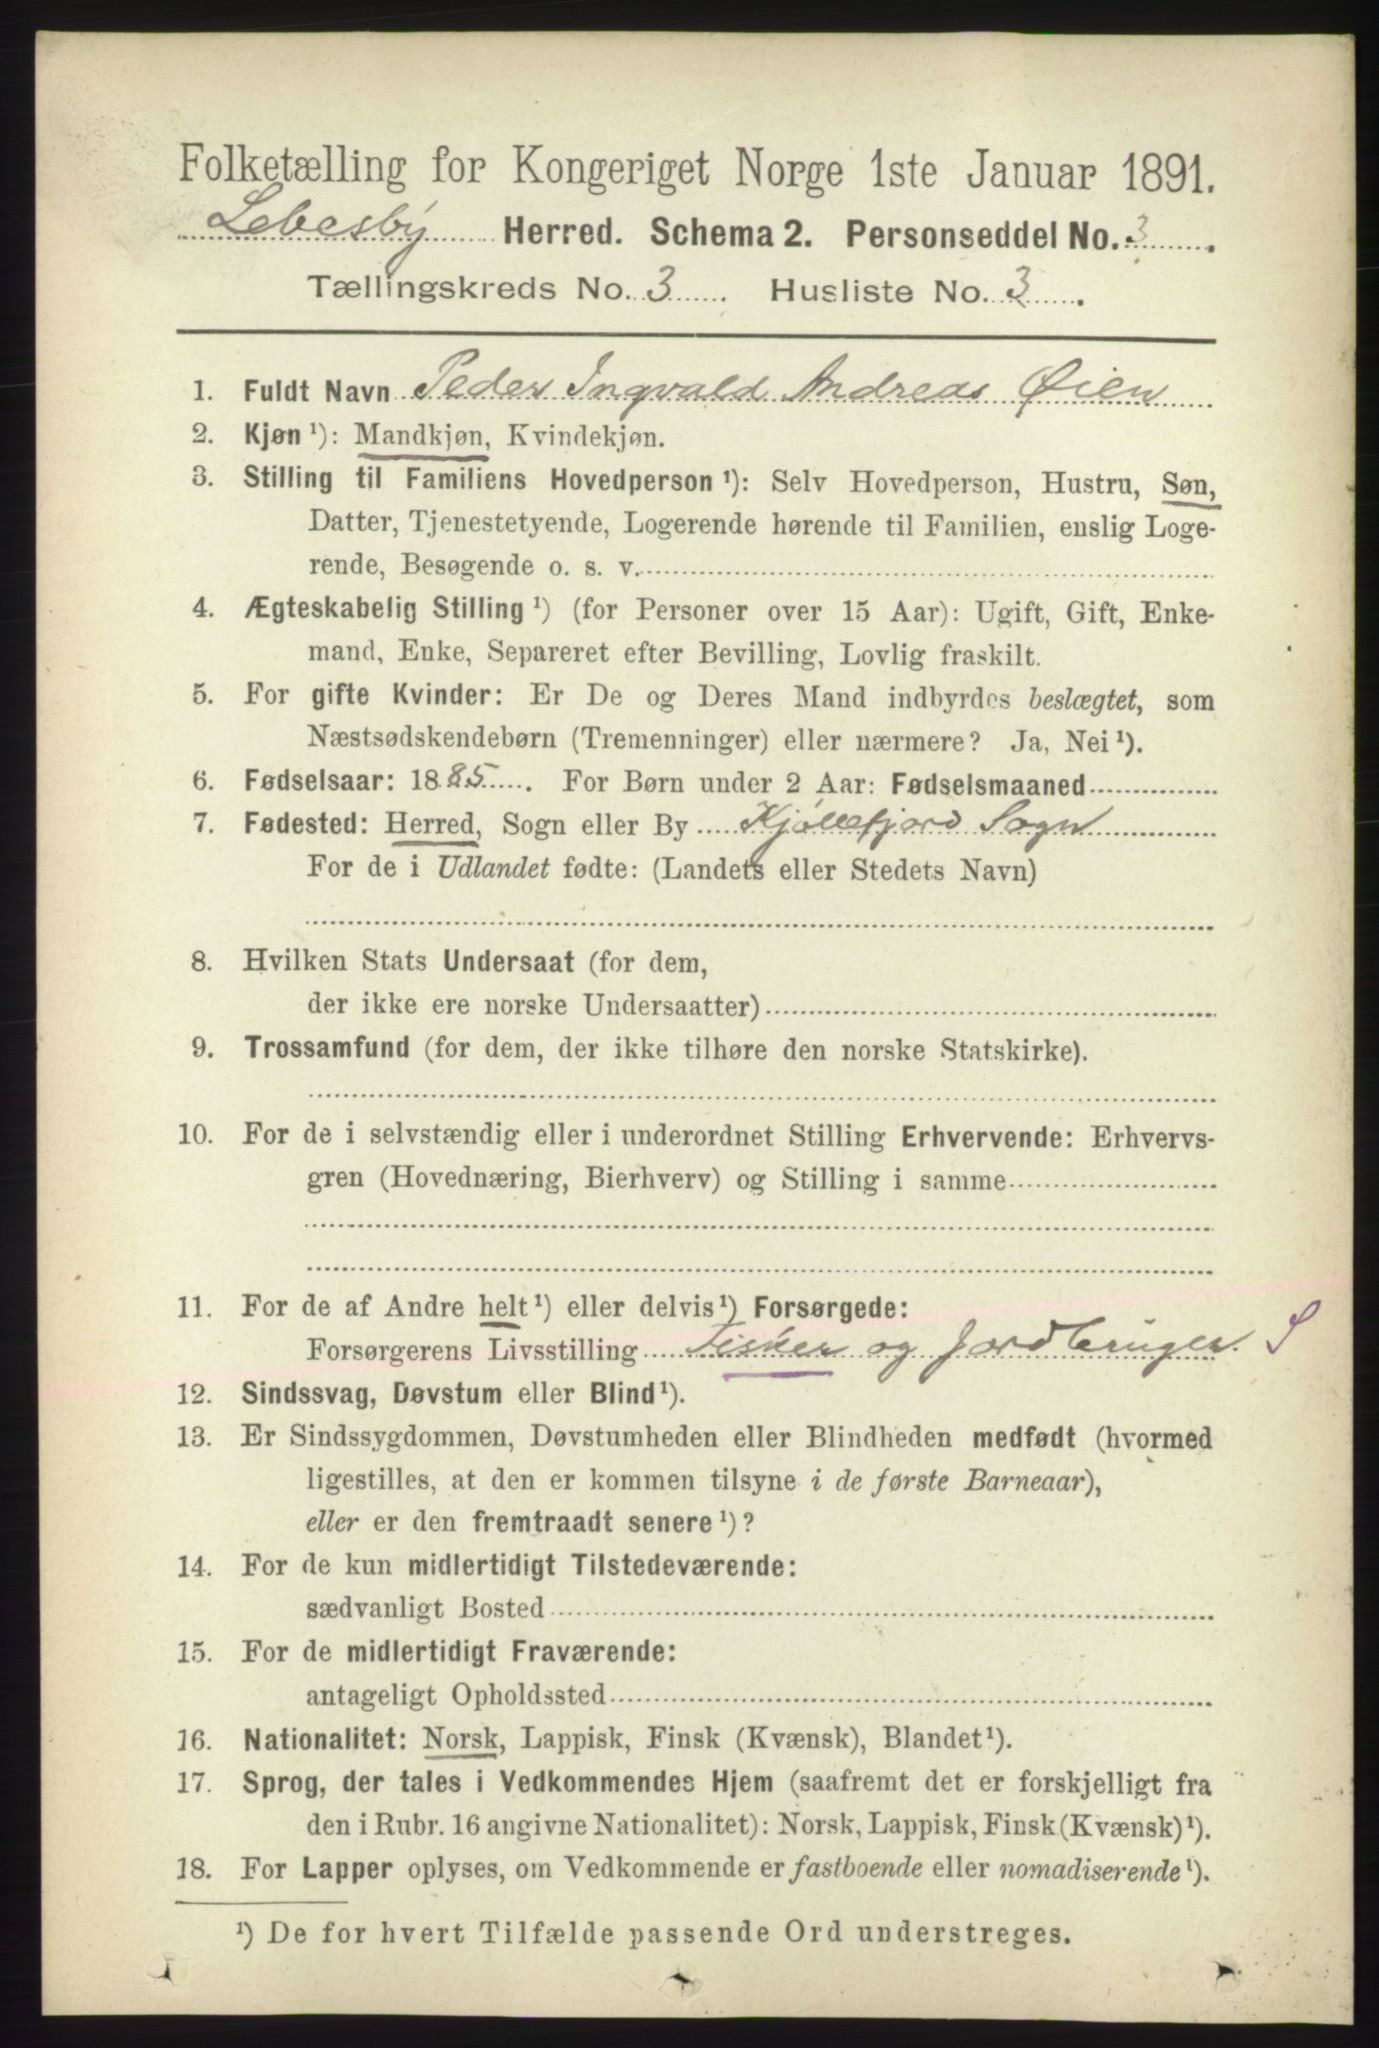 Folketælling for Kongeriget Norge 1ste Januar 1891.
Lebesby Herred. Schema 2. Personseddel No. 3.
Tællingskreds No. 3. Husliste No. 3.
1. Fuldt Navn Peder Ingvald Andreas Øien
2. Kjøn ¹): Mandkjøn, Kvindekjøn.
3. Stilling til Familiens Hovedperson ¹): Selv Hovedperson, Hustru, Søn,
Datter, Tjenestetyende, Logerende hørende til Familien, enslig Loge-
rende, Besøgende o. s. v.
4. Ægteskabelig Stilling ¹) (for Personer over 15 Aar): Ugift, Gift, Enke-
mand, Enke, Separeret efter Bevilling, Lovlig fraskilt.
5. For gifte Kvinder: Er De og Deres Mand indbyrdes beslægtet, som
Næstsødskendebørn (Tremenninger) eller nærmere? Ja, Nei ¹).
6. Fødselsaar: 1885. For Børn under 2 Aar: Fødselsmaaned
7. Fødested: Herred, Sogn eller By Kjöllefjord Sogn
For de i Udlandet fødte: (Landets eller Stedets Navn)
8. Hvilken Stats Undersaat (for dem,
der ikke ere norske Undersaatter)
9. Trossamfund (for dem, der ikke tilhøre den norske Statskirke).
10. For de i selvstændig eller i underordnet Stilling Erhvervende: Erhvervs-
gren (Hovednæring, Bierhverv) og Stilling i samme
11. For de af Andre helt ¹) eller delvis ¹) Forsørgede:
Forsørgerens Livsstilling Fisker og Jordbruger. S
12. Sindssvag, Døvstum eller Blind ¹).
13. Er Sindssygdommen, Døvstumheden eller Blindheden medfødt (hvormed
ligestilles, at den er kommen tilsyne i de første Barneaar),
eller er den fremtraadt senere ¹)?
14. For de kun midlertidigt Tilstedeværende:
sædvanligt Bosted
15. For de midlertidigt Fraværende:
antageligt Opholdssted
16. Nationalitet: Norsk, Lappisk, Finsk (Kvænsk), Blandet ¹).
17. Sprog, der tales i Vedkommendes Hjem (saafremt det er forskjelligt fra
den i Rubr. 16 angivne Nationalitet): Norsk, Lappisk, Finsk (Kvænsk) ¹).
18. For Lapper oplyses, om Vedkommende er fastboende eller nomadiserende ¹).
¹) De for hvert Tilfælde passende Ord understreges.